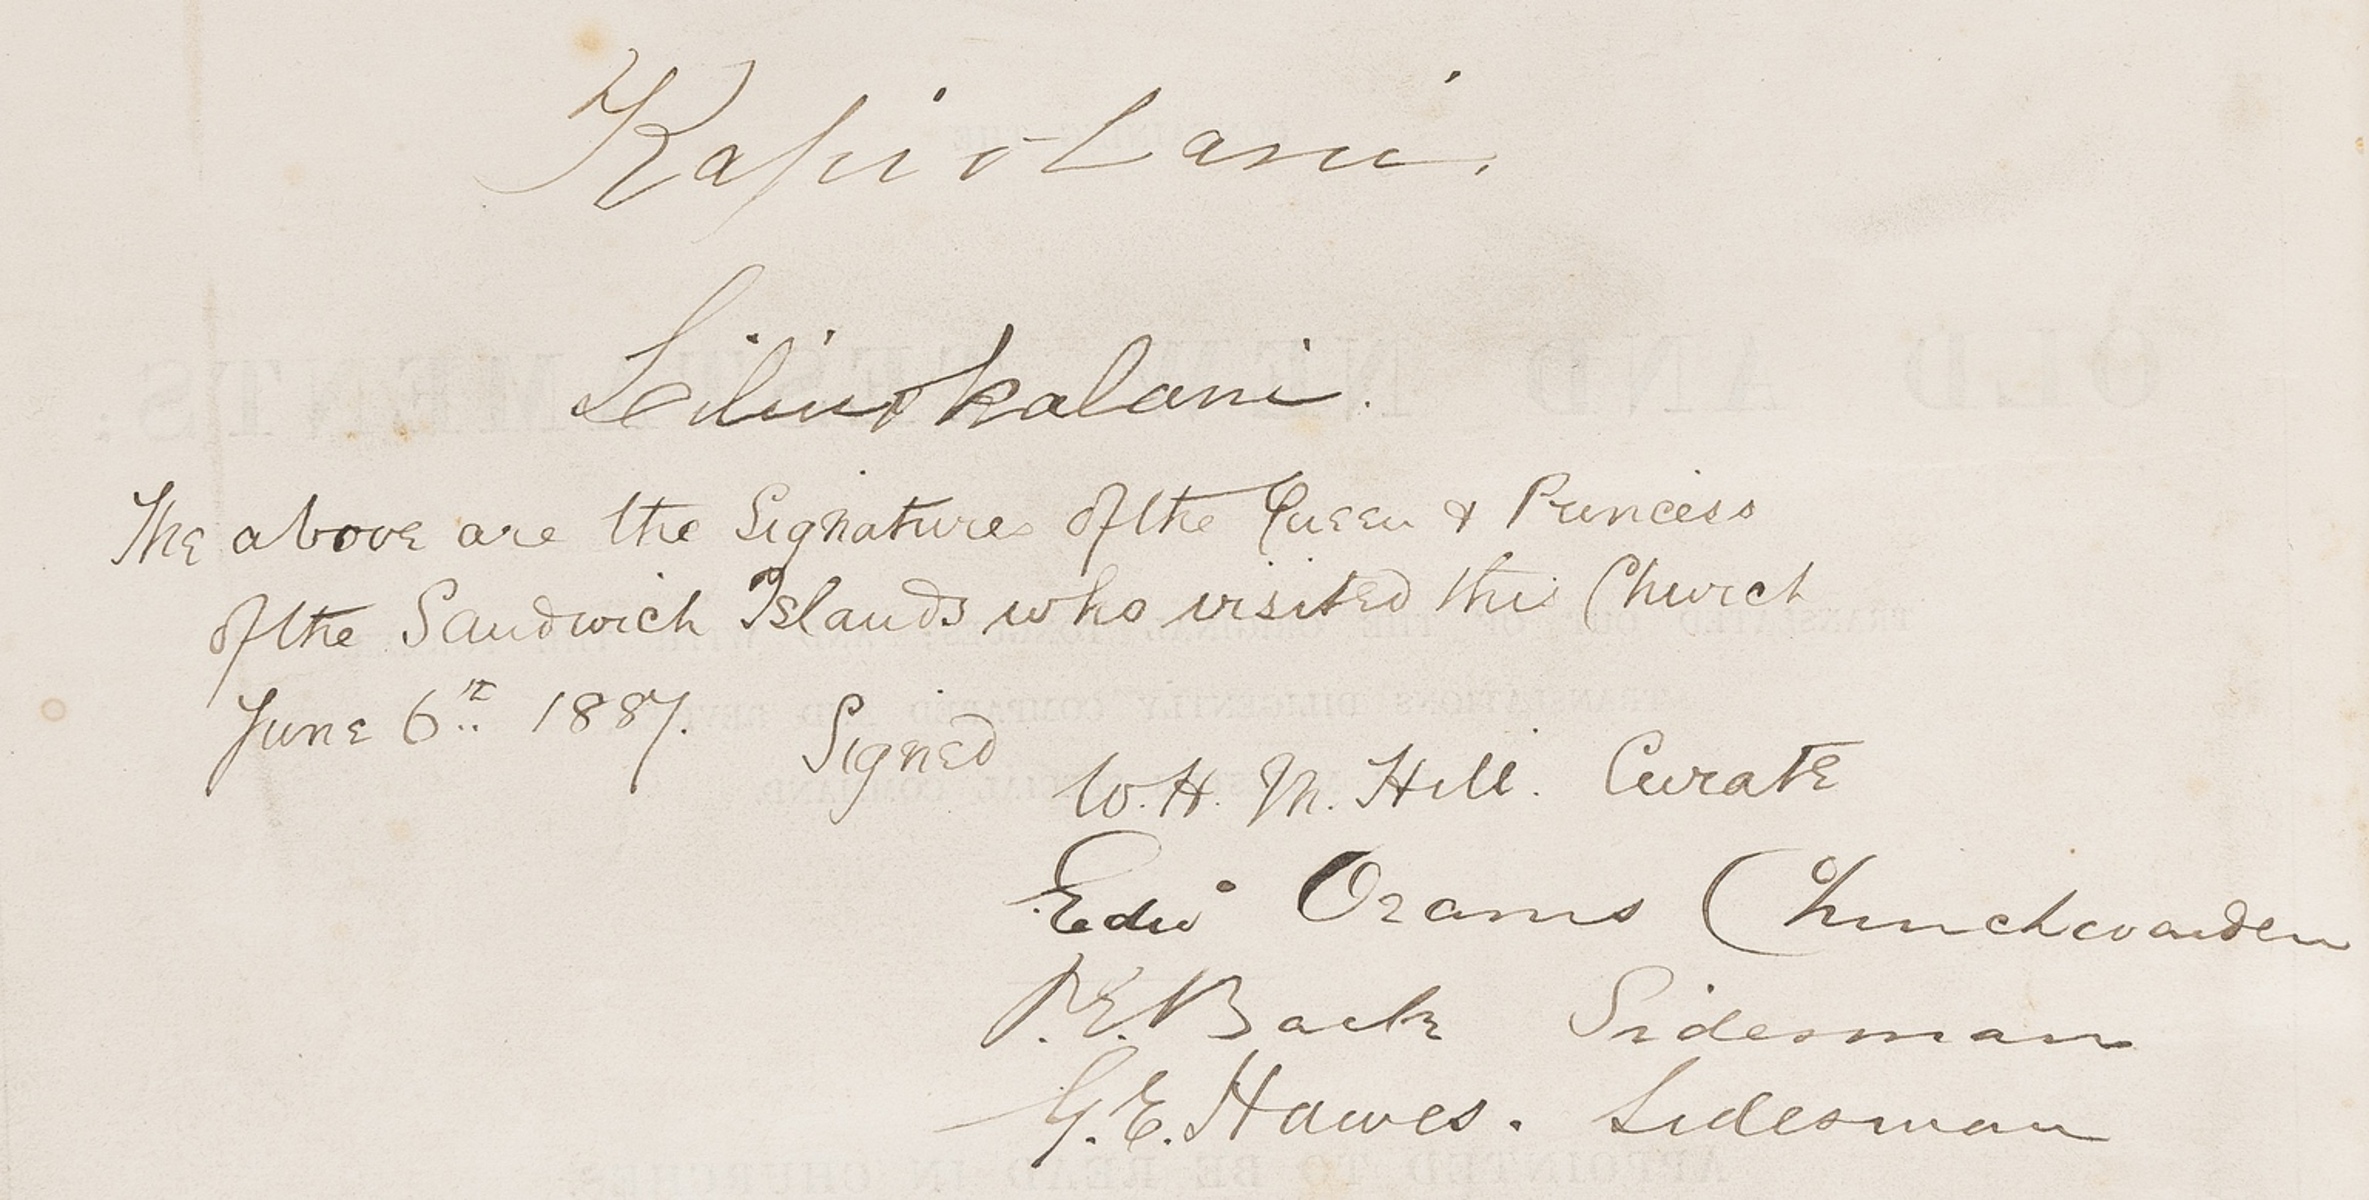 Kapiolani.
Liliuokalani.
The above are the Signatures of the Queen & Princess
of the Sandwich Islands who visited this Church
June 6th 1887. Signed
W. H. M. Hill. Curate
Edw Orams Churchwarden
P. E. Back Sidesman
G. E. Hawes. Sidesman
OLD AND NEW TESTAMENTS:
TRANSLATED OUT OF THE ORIGINAL
TRANSLATIONS DILIGENTLY COMPARED AND
SPECIAL COMMAND.
APPOINTED TO BE READ IN CHURCHES